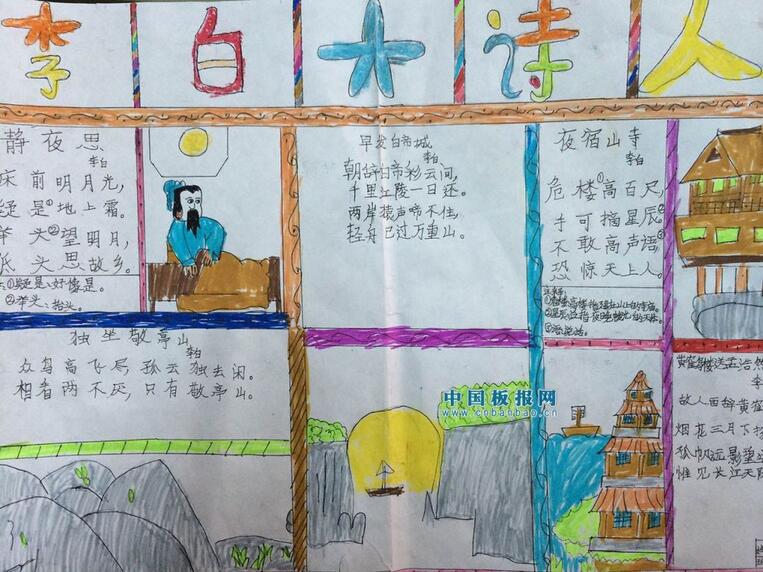 李白大诗人
静夜思
李白
床前明月光,
疑是①地上霜。
举头②望明月,
低头思故乡。
①疑是:好像是。
②举头:抬头。
早发白帝城
李白
朝辞白帝彩云间,
千里江陵一日还。
两岸猿声啼不住,
轻舟已过万重山。
夜宿山寺
李白
危楼①高百尺,
手可摘星辰②
不敢高声语③
恐惊天上人。
独坐敬亭山
李白
众鸟高飞尽,孤云独去闲。
相看两不厌,只有敬亭山。
中国板报网
www.cnbanbao.cn
黄鹤楼送孟浩然
李白
故人西辞黄鹤
烟花三月下扬
孤帆远影碧空
惟见长江天际